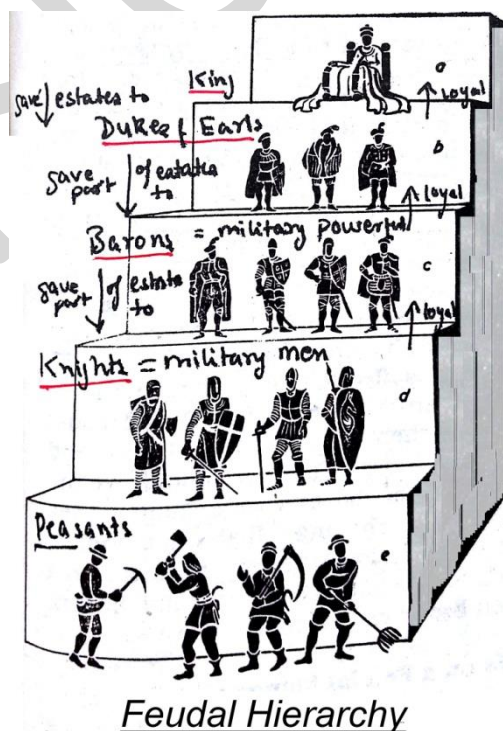 King
a
save estates to
Loyal
Dukes & Earls
b
save part of estates to
Loyal
Barons = military powerful
c
save part of estate to
loyal
Knights = military men
d
Peasants
e
Feudal Hierarchy